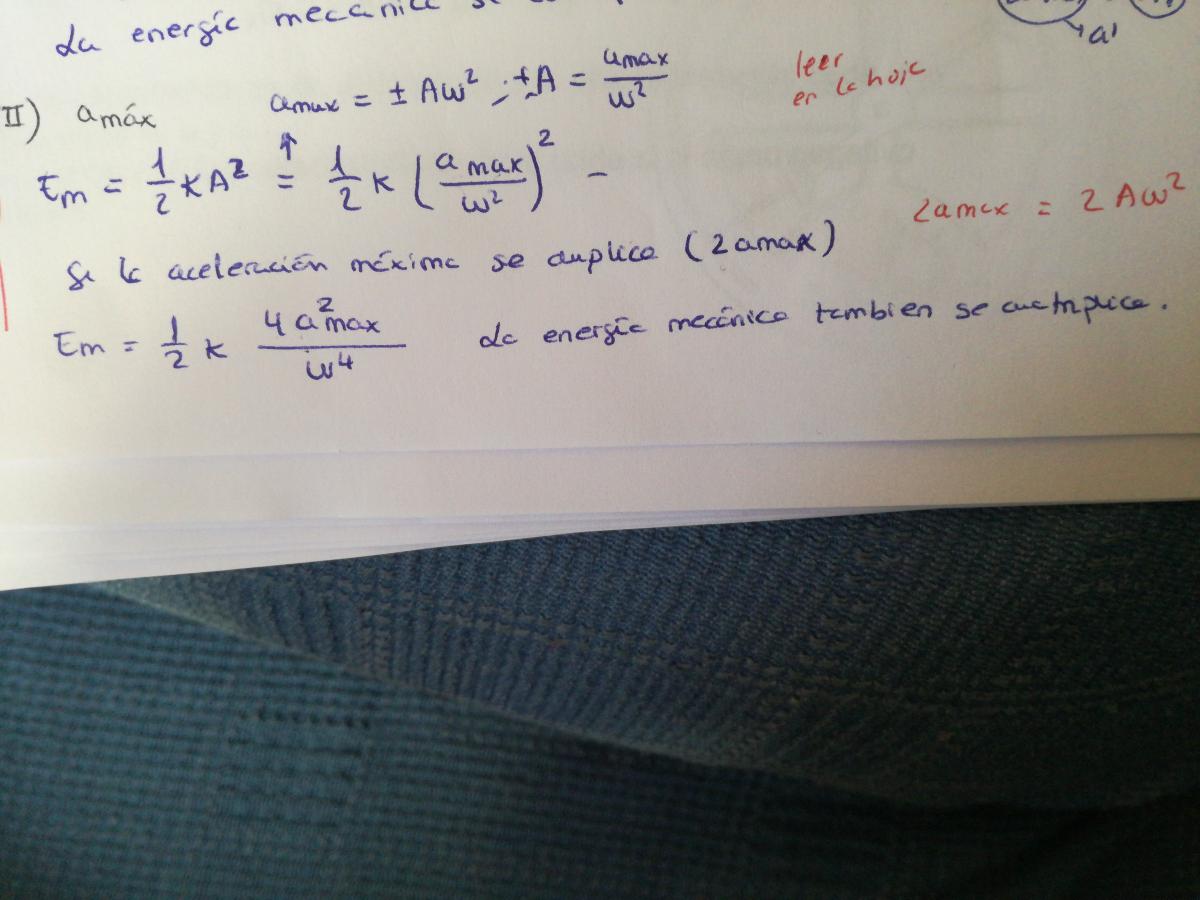 La energía mecánica se
a'
II) amáx amax = ± Aw² ; ±A = amax/w²
leer
en la hoja
Em = 1/2 KA² = 1/2 K (amax/w²)² –
2amax = 2Aw²
Si la aceleración máxima se duplica (2amax)
Em = 1/2 K 4a²max/w⁴ La energía mecánica tambien se cuatriplica.